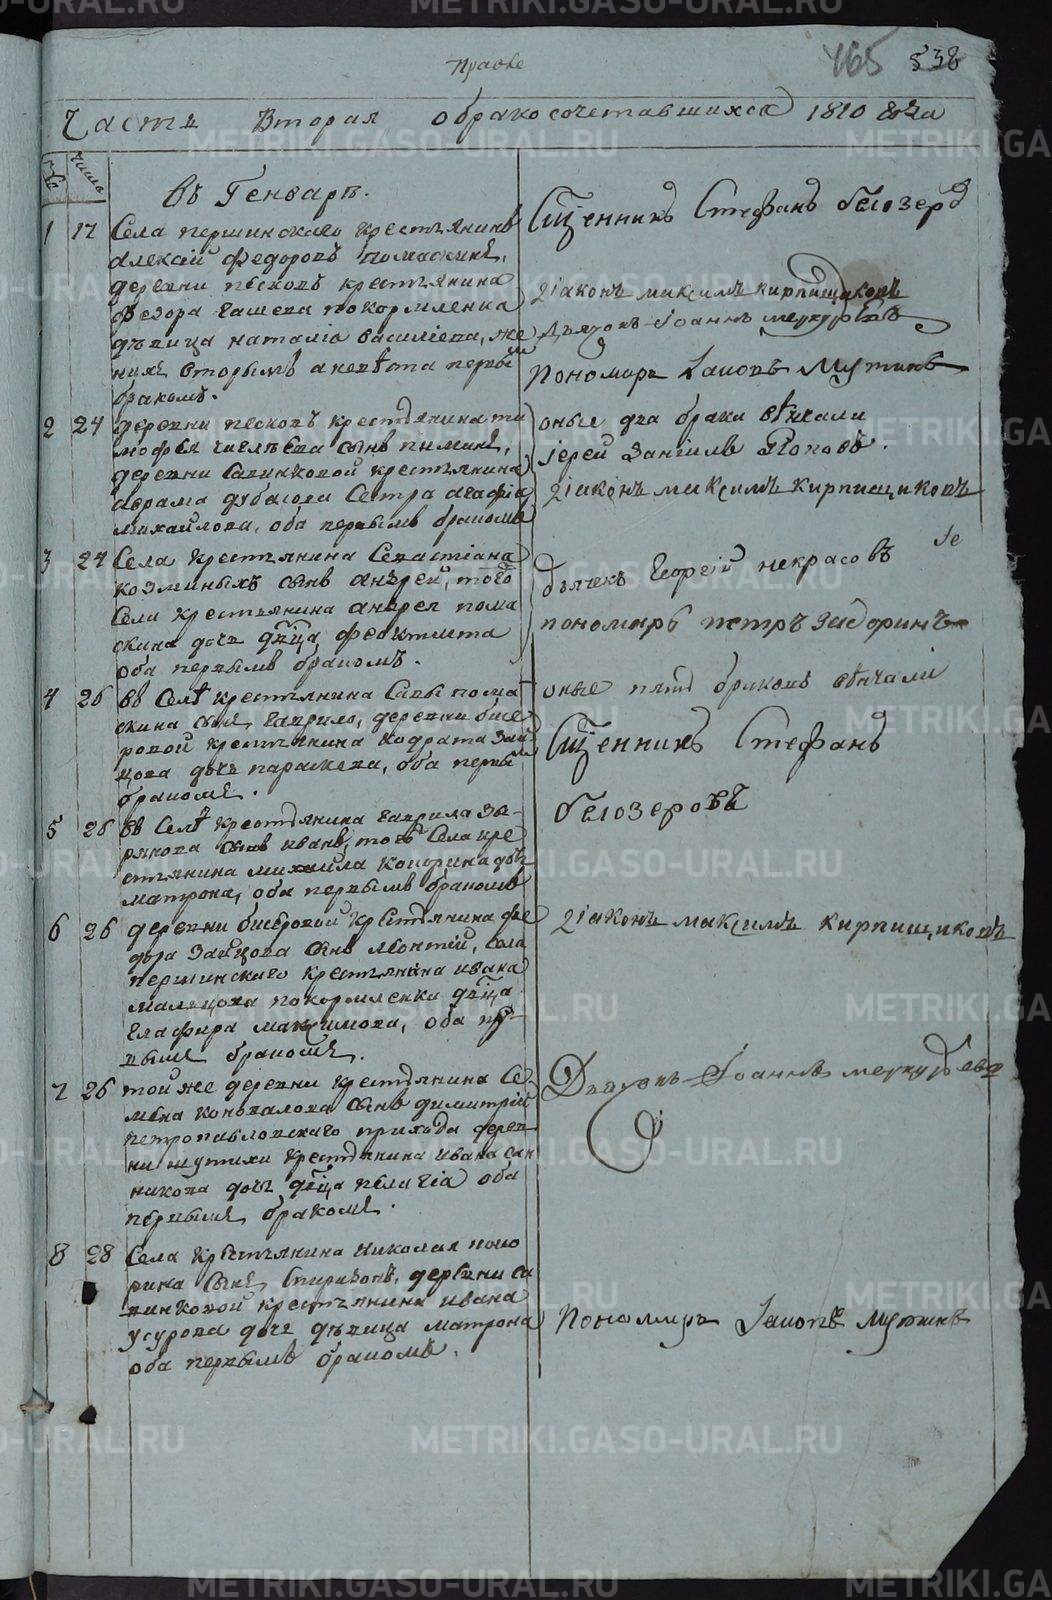 465 538
Часть Вторая обракосочетавшихся 1810 года
число
въ Генваре.
1 17 Села першинскаго крестьянинъ
алексей федоровъ помаскинъ,
деревни песковъ крестьянина
федора покормленка
девица наталiа василiева, же
нихъ вторымъ а невеста первы
бракомъ.
2 24 деревни песковъ крестьянина ти
мофея сынъ пиминъ,
деревни савинковой крестьянина
аврама дубасова Сестра агафiа
михайлова, оба первымъ бракомъ
3 24 Села крестьянина Севастiана
козминыхъ сынъ андрей, того
Села крестьянина андрея пома
скина дочь феоктиста
оба первымъ бракомъ.
4 26 въ Селе крестьянина Савы пома
скина сынъ гаврило, деревни бисе
ровой крестьянина кодрата зай
цова дочь параскева, оба первы
бракомъ.
5 26 въ Селе крестьянина гаврила зы
рянова сынъ иванъ, того Села кре
стьянина михайла кокорина дочь
матрона, оба первымъ бракомъ
6 26 деревни бисеровой крестьянина фе
дора Зайцова сынъ леонтей, села
першинскаго крестьянина ивана
мальцова покормленка
глафира максимова, оба пер
вымъ бракомъ.
7 26 той же деревни крестьянина Се
мена коновалова сынъ димитрiй
петропавловскаго прихода дерев
ни шутихи крестьянина ивана сан
никова дочь пелагiа оба
первымъ бракомъ.
8 28 Села крестьянина николая коко
рина сынъ спиридонъ, деревни са
винковой крестьянина ивана
усурова дочь девица матрона
оба первымъ бракомъ.
Сщенникъ Стефанъ белозеръ
дiаконъ максимъ кирпищиковъ
Дьячокъ Iоаннъ меркурьевъ
Пономарь Iаковъ Мутинъ
оные два браки венчали
iерей Поповъ.
дiаконъ максимъ кирпищиковъ
дьячекъ Георгiй некрасовъ
пономарь петръ задоринъ
оные пять браковъ венчали
Сщенникъ Стефанъ
белозеровъ
дiаконъ максимъ кирпищиковъ
Дьячокъ Iоаннъ меркурьевъ
Пономарь Iаковъ мутинъ
METRIKI.GASO-URAL.RU